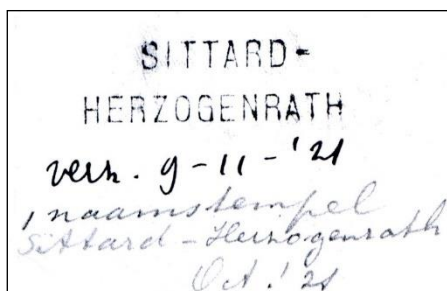 SITTARD-
HERZOGENRATH
verz. 9-11-'21
1 naamstempel
Sittard-Herzogenrath
Oct. '21